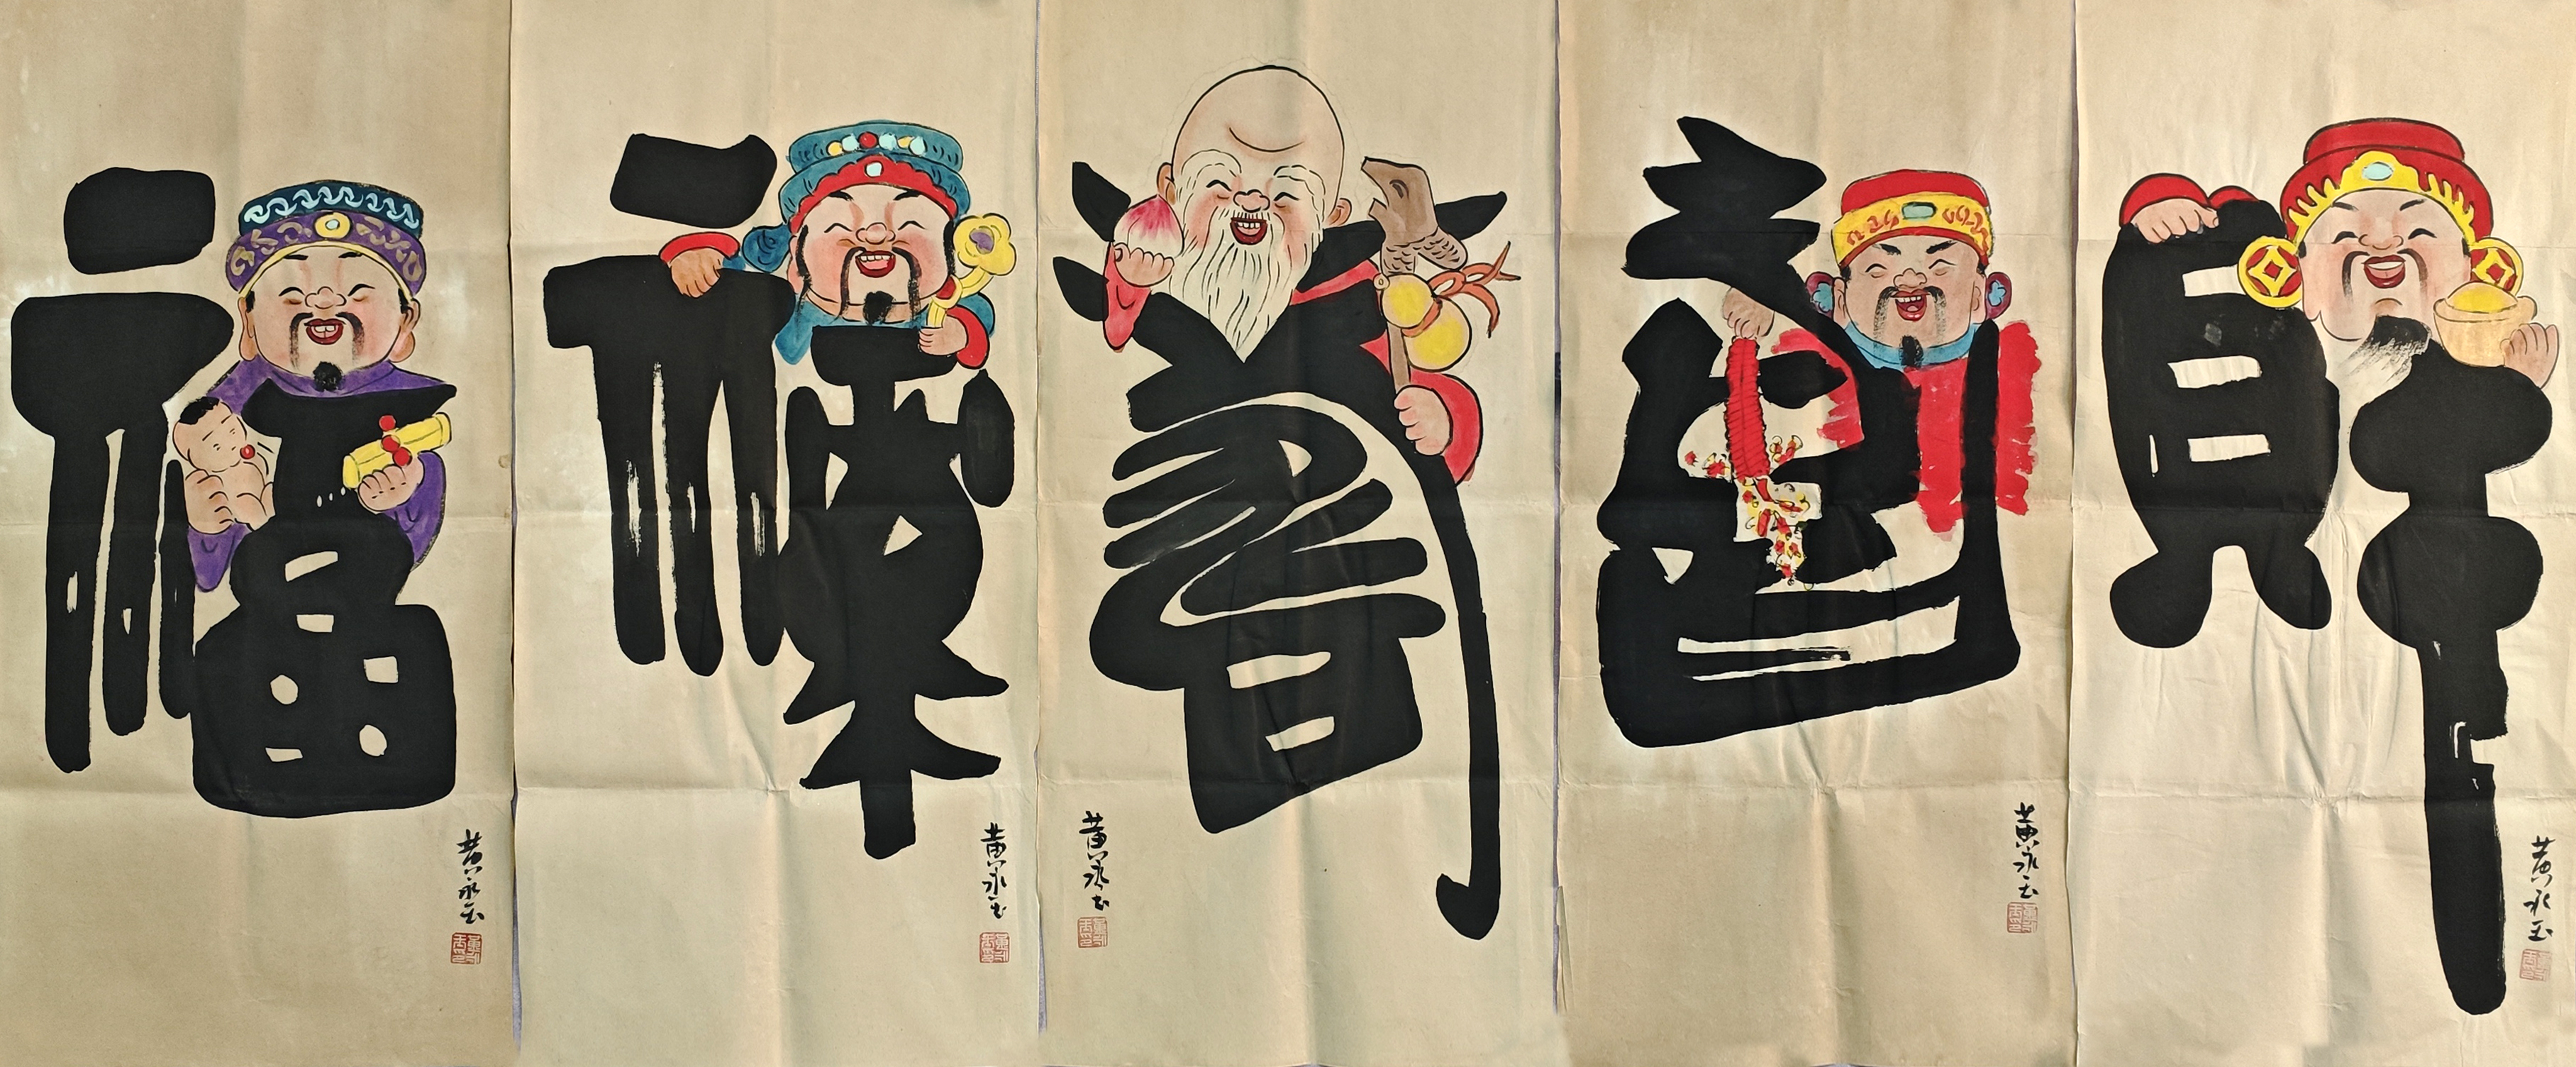 福
祿
壽
喜
財
黄永玉
黄永玉
黄永玉
黄永玉
黄永玉